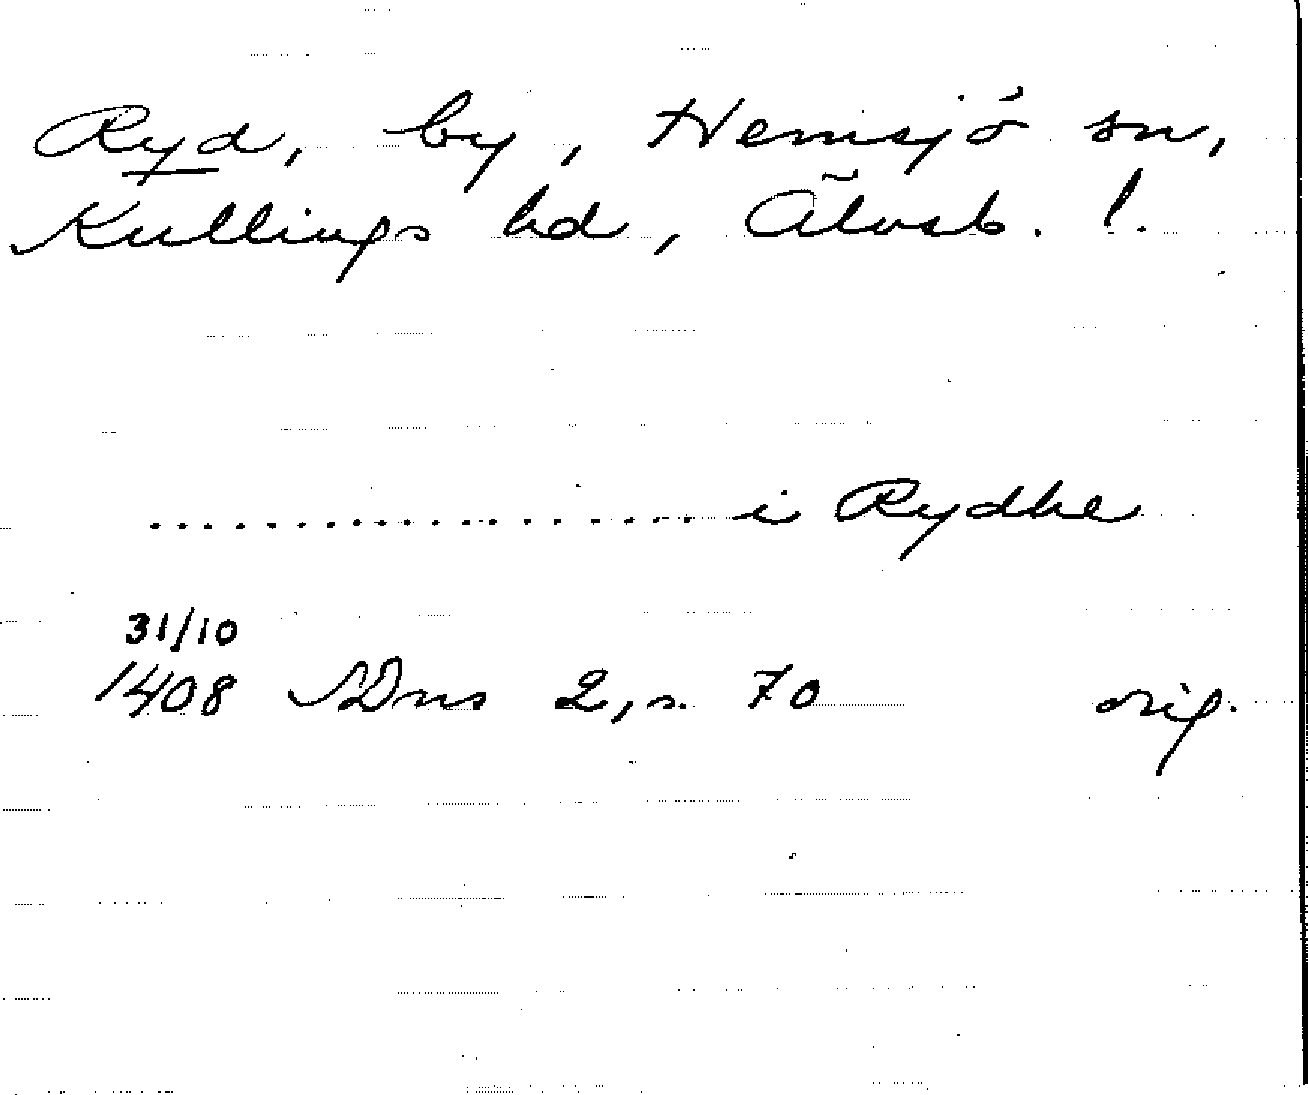 Ryd, by, Hemsjö sn,
Kullings hd, Älvsb. l.
................... i Rydhe
31/10
1408 SDns 2, s. 70 orig.